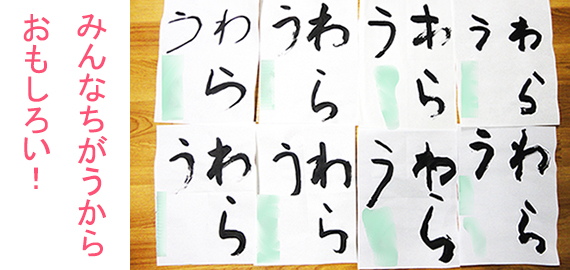 みんなちがうから
おもしろい！
わら
う
わら
う
わら
う
わら
う
わら
う
わら
う
わら
う
わら
う